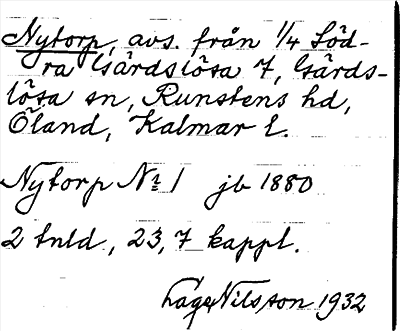 Nytorp, avs. från 1/4 Söd-
ra Gärdslösa 7, Gärds-
lösa sn, Runstens hd,
Öland, Kalmar l.
Nytorp No 1 jb 1880
2 tnld, 23,7 kappl.
Lage Nilsson 1932